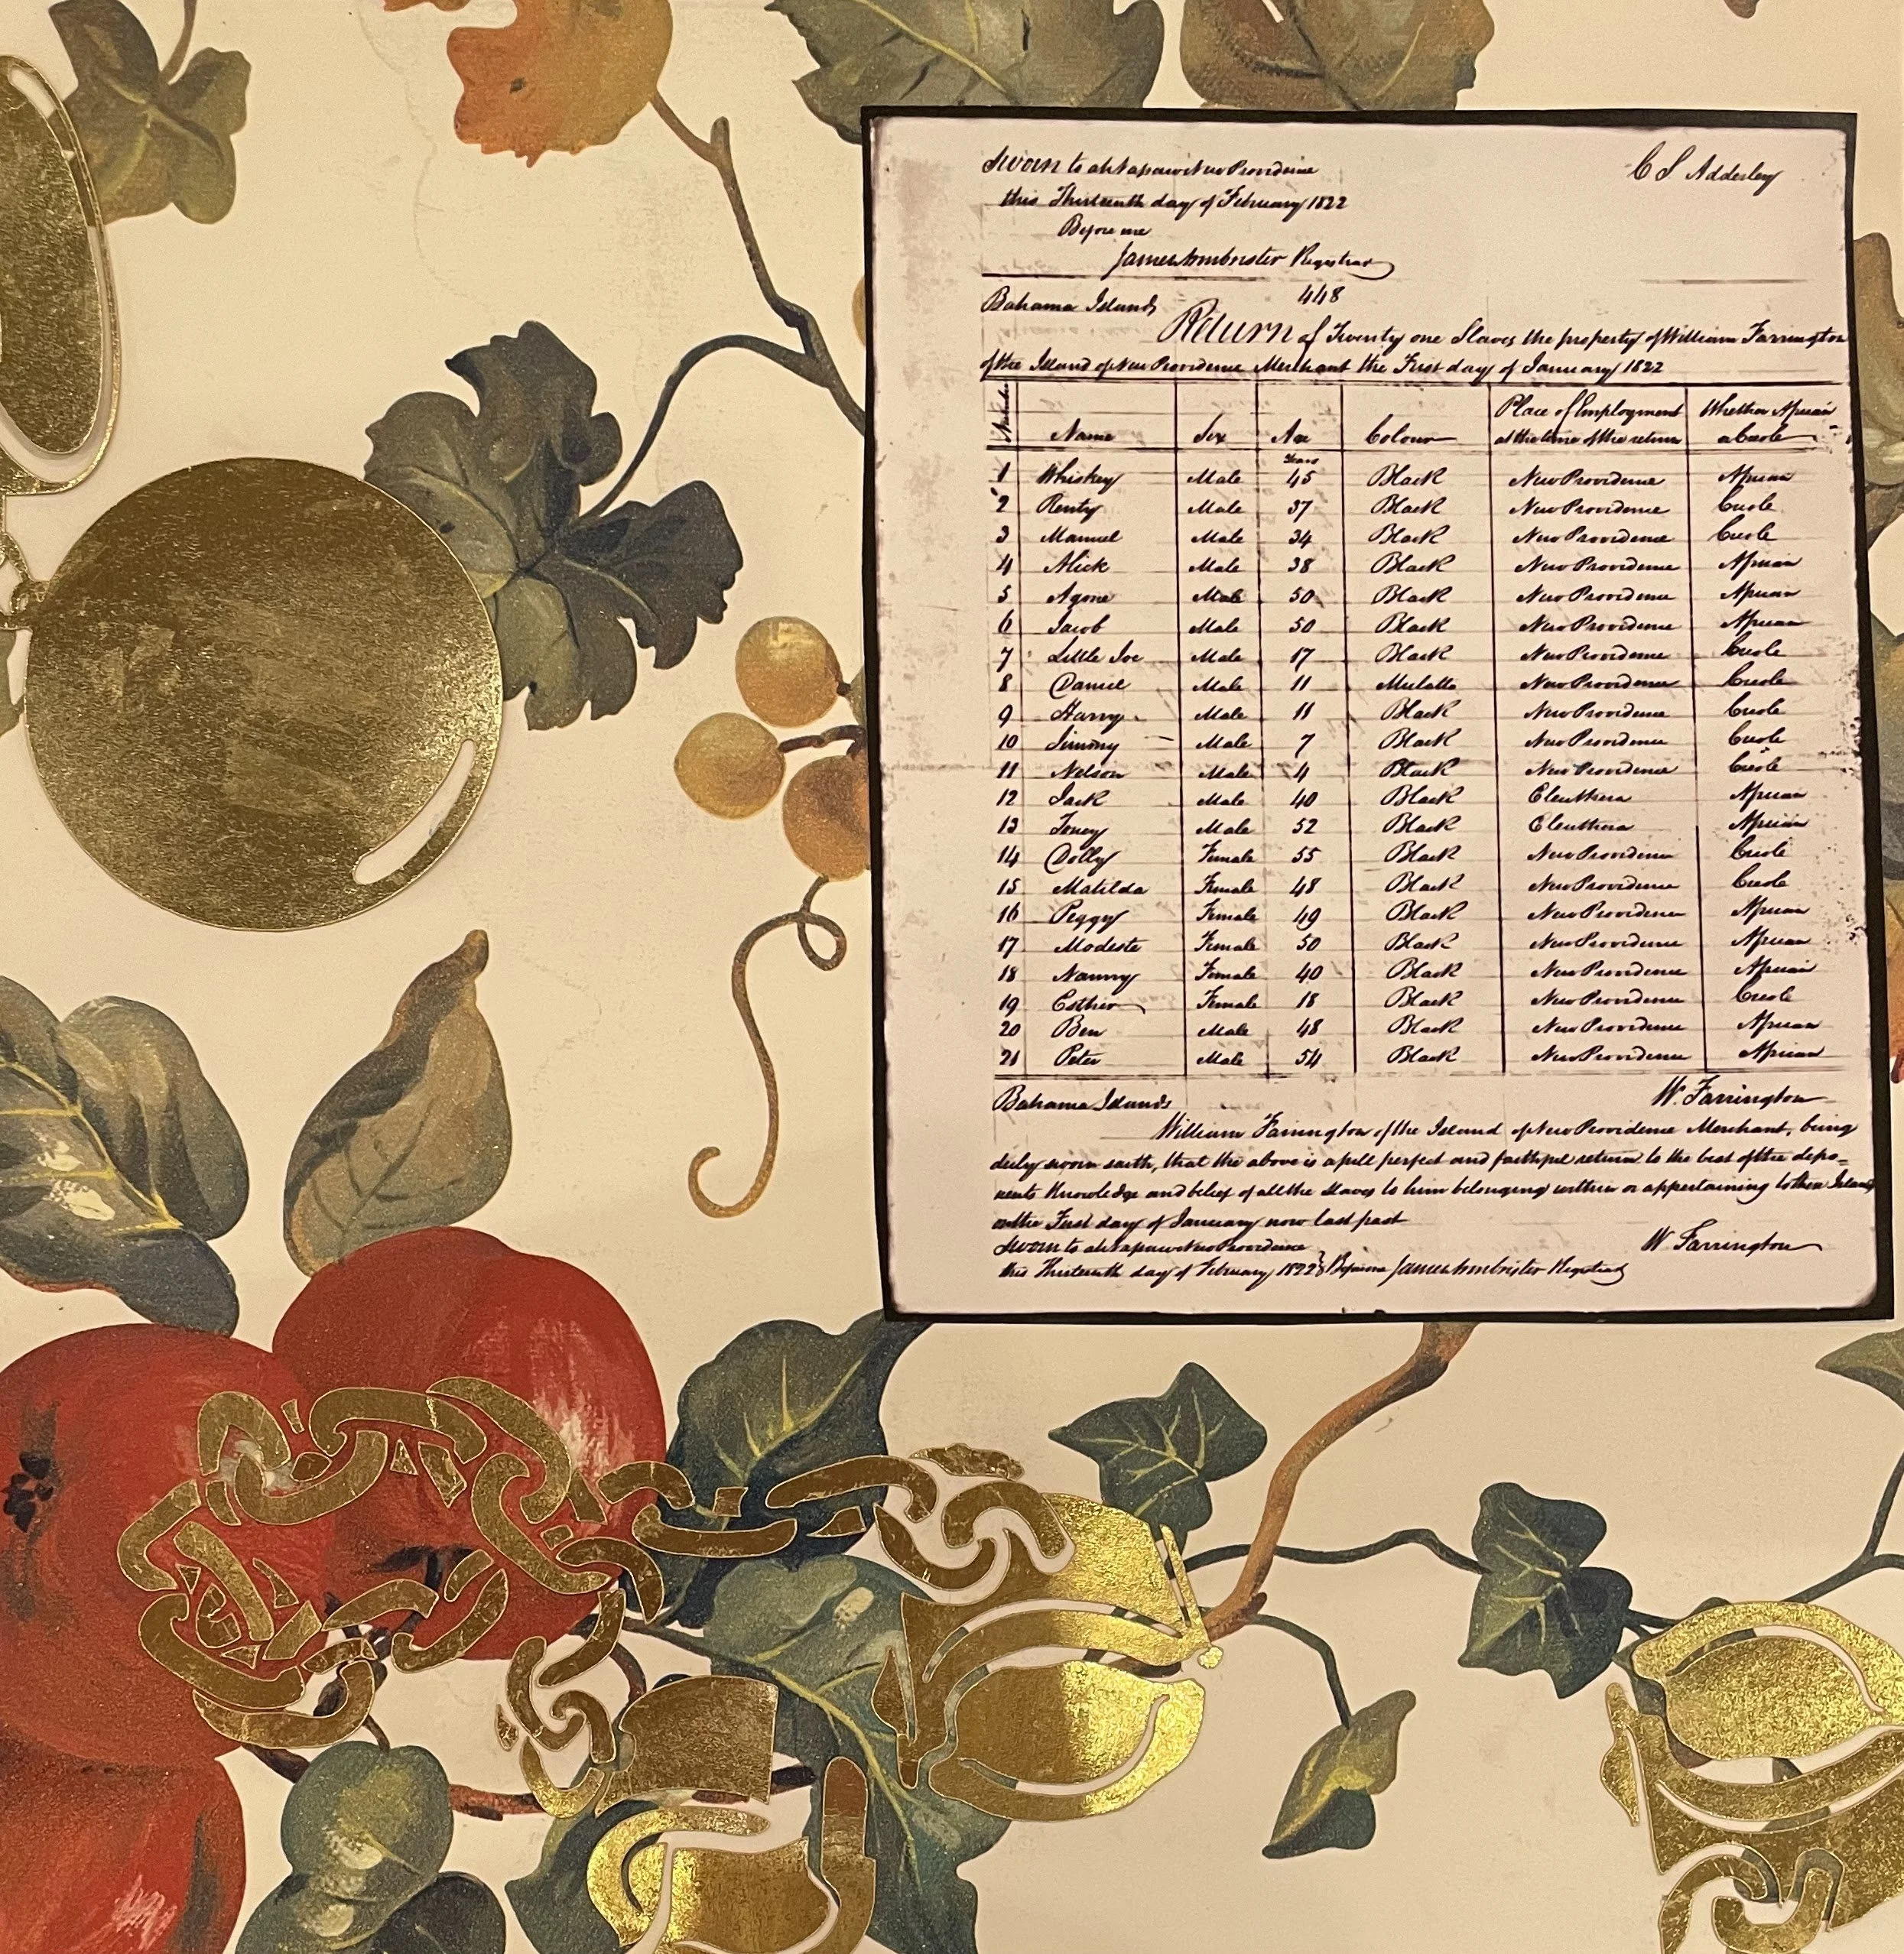 Sworn to at Nassau New Providence
C S Adderley
this Thirteenth day of February 1822
Before me
James Armbrister Registrar
Bahama Islands
448
Return of Twenty one Slaves the property of William Farrington
of the Island of New Providence Merchant the First day of January 1822
Number Name Sex Age Colour Place of Employment at the time of the return Whether African or Creole
Years
1 Whiskey Male 45 Black New Providence African
2 Renty Male 37 Black New Providence Creole
3 Manuel Male 34 Black New Providence Creole
4 Alick Male 38 Black New Providence African
5 Male 50 Black New Providence African
6 Jacob Male 50 Black New Providence African
7 Little Joe Male 17 Black New Providence Creole
8 Daniel Male 11 Mulatto New Providence Creole
9 Harry Male 11 Black New Providence Creole
10 Jimmy Male 7 Black New Providence Creole
11 Nelson Male 4 Black New Providence Creole
12 Jack Male 40 Black Eleuthera African
13 Toney Male 52 Black Eleuthera African
14 Dolly Female 55 Black New Providence Creole
15 Matilda Female 48 Black New Providence Creole
16 Peggy Female 49 Black New Providence African
17 Modeste Female 50 Black New Providence African
18 Nanny Female 40 Black New Providence African
19 Esther Female 18 Black New Providence Creole
20 Ben Male 48 Black New Providence African
21 Peter Male 54 Black New Providence African
Bahama Islands
W. Farrington
William Farrington of the Island of New Providence Merchant, being
duly sworn saith, that the above is a full perfect and faithful return to the best of the depo=
nents Knowledge and belief of all the Slaves to him belonging within or appertaining to these Islands
on the First day of January now last past
Sworn to at Nassau New Providence
W Farrington
this Thirteenth day of February 1822 } Before me James Armbrister Registrar